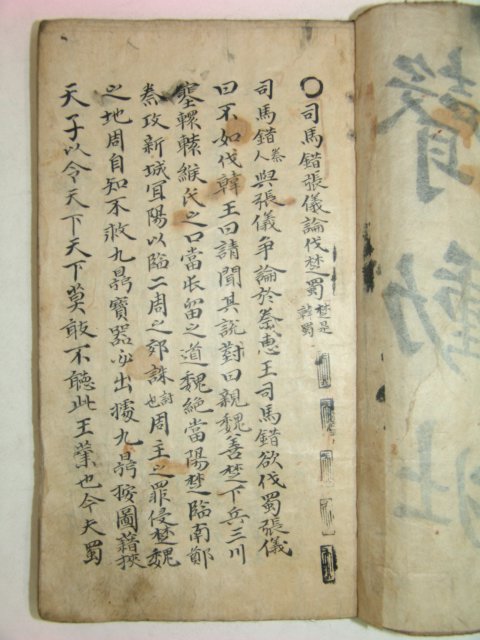 ○司馬錯張儀論伐楚蜀 楚是韓蜀
司馬錯秦人與張儀爭論於秦惠王司馬錯欲伐蜀張儀
曰不如伐韓王曰請聞其說對曰親魏善楚下兵三川
塞轘轅緱氏之口當屯留之道魏絕當陽楚臨南鄭
秦攻新城宜陽以臨二周之郊誅討也周主之罪侵楚魏
之地周自知不救九鼎寶器必出據九鼎按圖藉挾
天子以令天下天下莫敢不聽此王業也今夫蜀